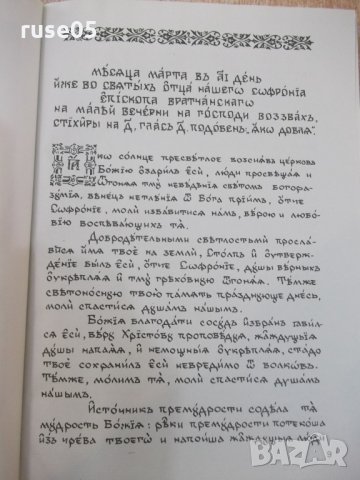 © ruse05
мѣсѧца ма́рта, въ а҃і де́нь
и҆́же во свѧты́хъ ѻ҆тца̀ на́шегѡ сѡфро́нїа
є҆пі́скопа врача́нскагѡ
на ма́лѣй вече́рни на го́споди воззва́хъ,
стїхи́ры на д҃, гла́съ д҃, подо́бенъ: ꙗ҆́кѡ до́блѧ:
Ꙗ҆́кѡ со́лнце пресвѣ́тлое возсїѧ́въ це́рковь
бо́жїю ѡ҆зари́лъ є҆сѝ, лю́ди просвѣща́ѧ и҆
ѿгонѧ́ѧ тмꙋ̀ невѣ́дѣнїѧ свѣ́томъ богора-
зꙋ́мїѧ, вѣне́цъ нетлѣ́нїѧ ѿ бо́га прїи́мъ, ѻ҆́тче
сѡфро́нїе, молѝ и҆зба́витисѧ на́мъ, вѣ́рою и҆ любо́-
вїю воспѣва́ющихъ тѧ̀.
Добродѣ́тельными свѣ́тлостьми просла́-
вйсѧ и҆́мѧ твоѐ на землѝ, сто́лпъ и҆ ѹ҆твержде́-
нїе бы́лъ є҆сѝ, ѻ҆́тче сѡфро́нїе, дꙋ́шы вѣ́рныхъ
ѹ҆крѣплѧ́ѧ и҆ тмꙋ̀ грѣхо́внꙋю ѿгонѧ́ѧ. Тѣ́мже
свѣтоно́снꙋю твою̀ па́мѧть пра́зднꙋюще дне́сь,
молѝ спасти́сѧ дꙋша́мъ на́шымъ.
Бо́жїѧ благода́ти сосꙋ́дъ и҆збра́нъ ꙗ҆ви́лсѧ
є҆сѝ, вѣ́рꙋ хрісто́вꙋ проповѣ́дꙋѧ, жа́ждꙋщыѧ
дꙋ́шы напаѧ́ѧ, и҆ немощны́ѧ ѹ҆крѣплѧ́ѧ, ста́до
твоѐ сохрани́лъ є҆сѝ невреди́мо ѿ волкѡ́въ.
Тѣ́мже, мо́лимъ тѧ̀, молѝ спасти́сѧ дꙋша́мъ
на́шымъ.
И҆сто́чникъ премꙋ́дрости содѣ́ла тѧ̀
мꙋ́дрость бо́жїѧ: рѣ́ки премꙋ́дрости потеко́ша
и҆з̾ чре́ва твоегѡ̀ и҆ напои́ша жа́ждꙋщыѧ лю́ди
bazar